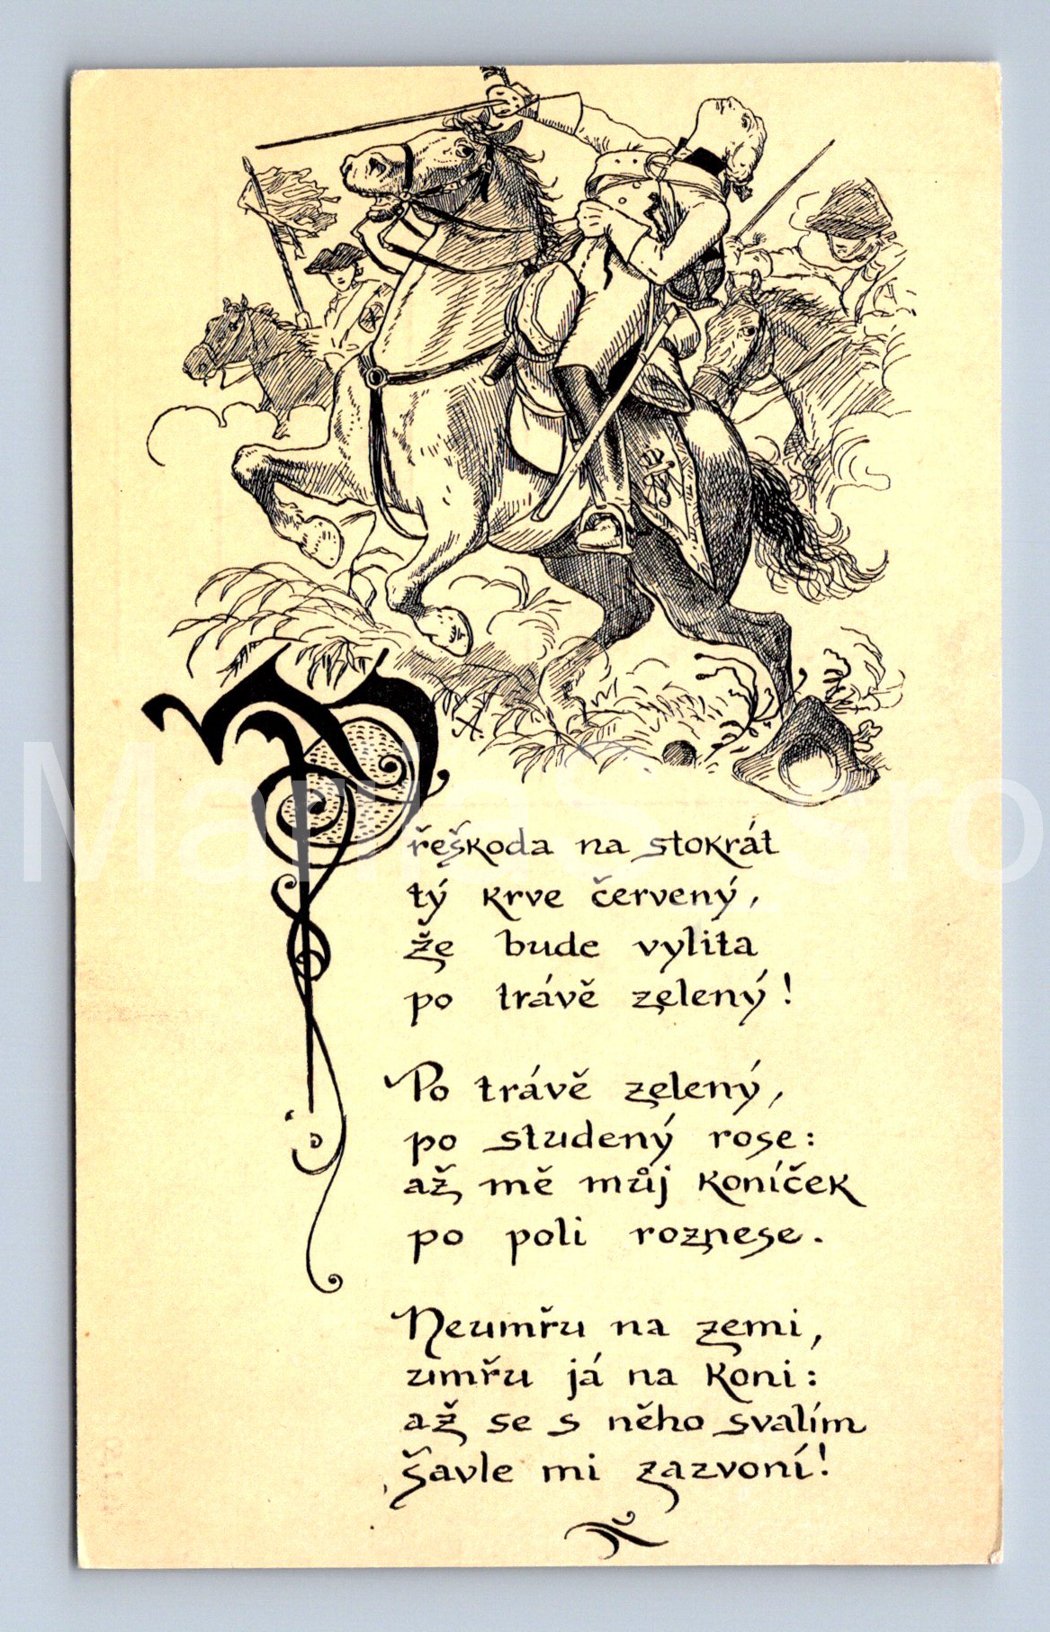 Přeškoda na stokrát
tý krve červený,
že bude vylita
po trávě zelený!
Po trávě zelený,
po studený rose:
až mě můj koníček
po poli roznese.
Neumřu na zemi,
umřu já na koni:
až se s něho svalím
šavle mi zazvoní!